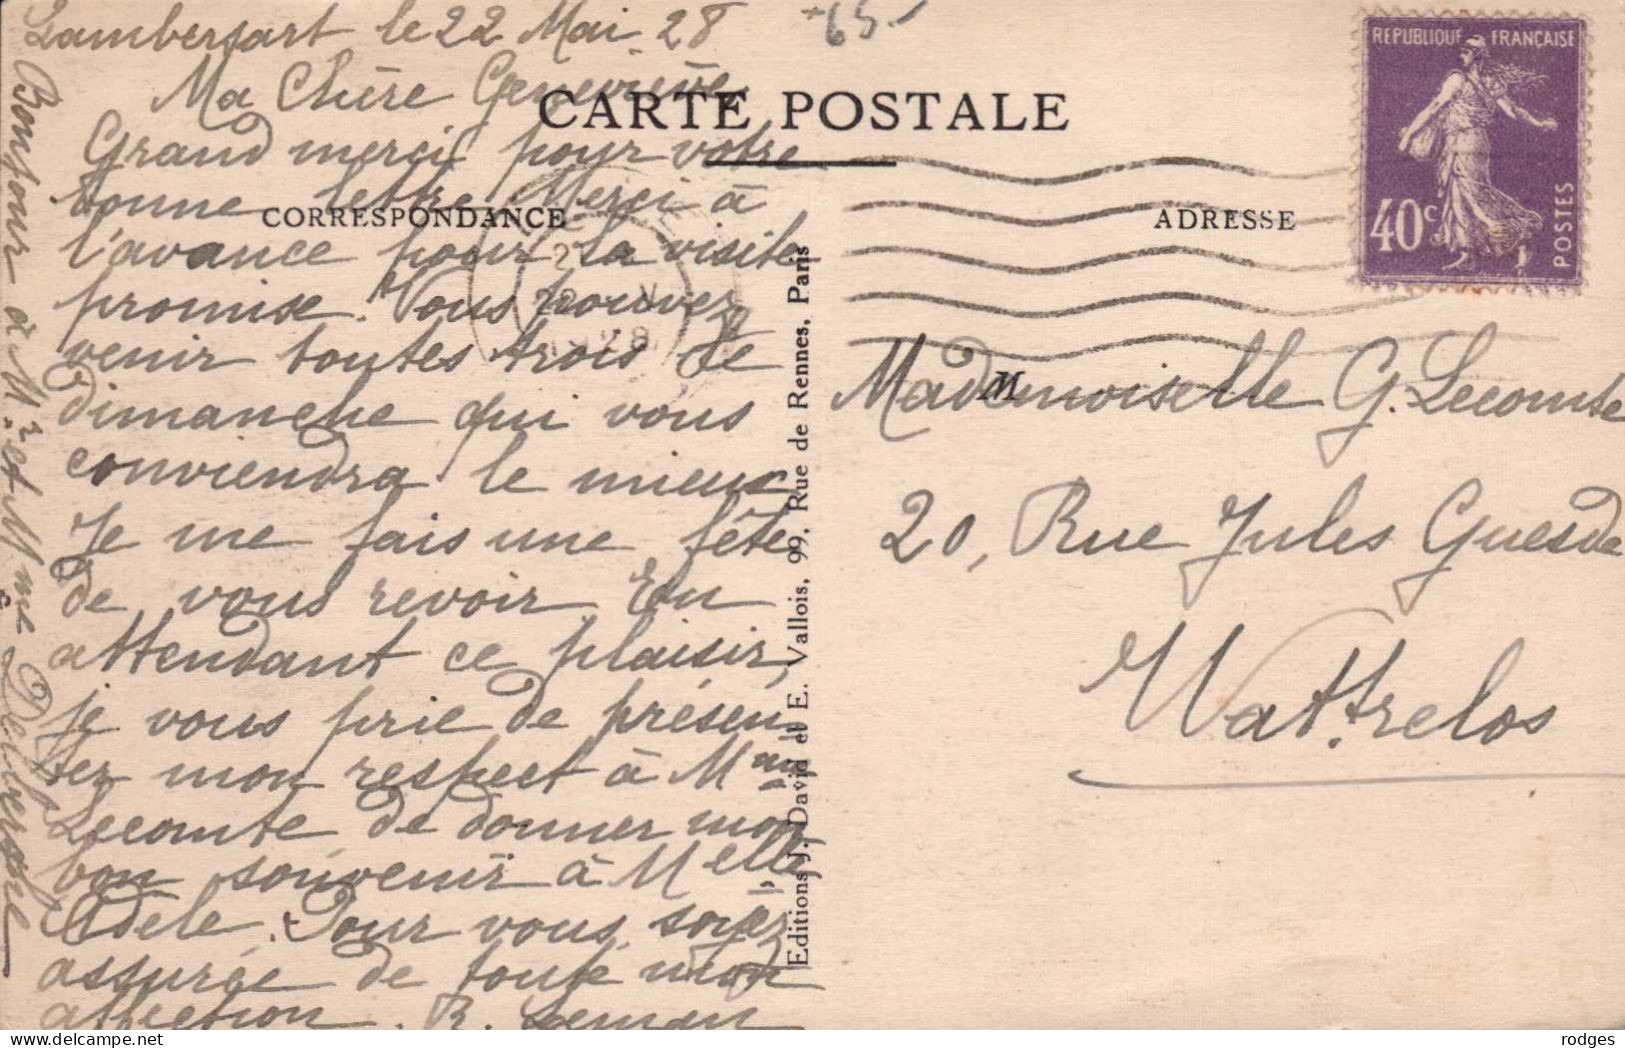 Lambersart le 22 Mai 28
+65-
Ma Chère Geneviève,
CARTE POSTALE
Grand merci pour votre
bonne lettre. Merci à
CORRESPONDANCE
l'avance pour la visite
promise. Vous pouvez
venir toutes trois le
dimanche qui vous
conviendra le mieux
Je me fais une fête
de vous revoir. En
attendant ce plaisir,
je vous prie de présen-
ter mon respect à Mme
Lecomte, de donner mon
bon souvenir à Melle
Adèle. Pour vous, soyez
assurée de toute mon
affection. R.
Bonjour à Mr et Mme
22 V
1928
Editions J. David et E. Vallois, 99, Rue de Rennes, Paris
REPUBLIQUE FRANÇAISE
40c
POSTES
ADRESSE
M
Mademoiselle G. Lecomte
20, Rue Jules Guesde
Wattrelos
rodges